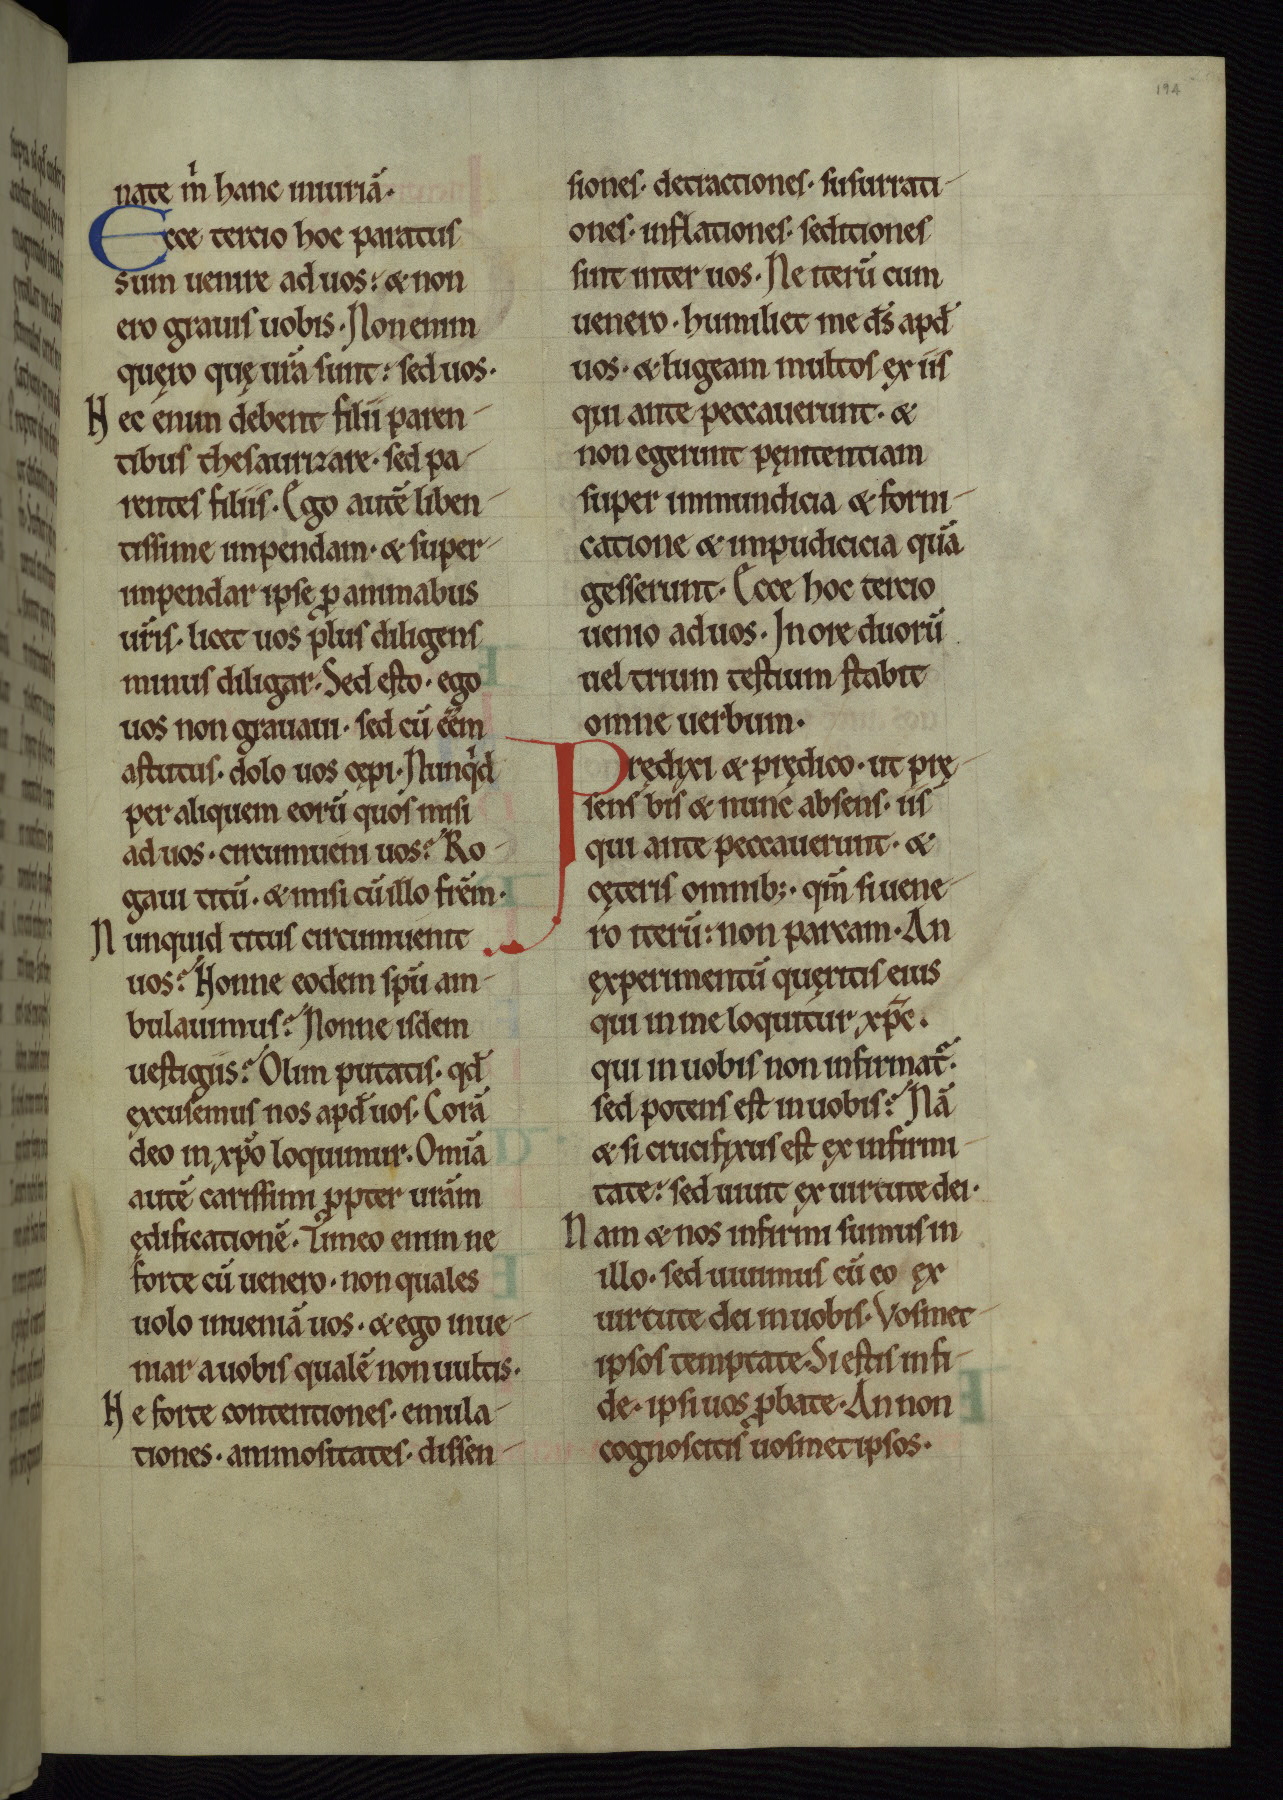 194
nate m̊ hanc iniuriā.
Ecce tercio hoc paratus
sum uenire ad uos: & non
ero grauis uobis. Non enim
quęro quę ur̄a sunt: sed uos.
Nec enim debent filii paren-
tibus thesaurizare. sed pa-
rentes filiis. Ego autē liben-
tissime inpendam. & super-
inpendar ipse ꝓ animabus
ur̄is. licet uos plus diligens
minus diligar. Sed esto. ego
uos non grauaui. sed cū eēm
astutus. dolo uos cępi. Nunqd̓
per aliquem eorū quos misi
ad uos. circumueni uos? Ro-
gaui titū. & misi cū illo frēm.
Nunquid titus circumuenit
uos? Nonne eodem spū am-
bulauimus? Nonne isdem
uestigiis? Olim putatis. qđ
excusemus nos apđ uos. Corā
deo in xp̄o loquimur. Om̄ia
autē carissimi ꝓpter ur̄am
ędificationē. Timeo enim ne
forte cū uenero. non quales
uolo inueniā uos. & ego inue-
niar a uobis qualē non uultis.
Ne forte contentiones. emula-
tiones. animositates. dissen-
siones. detractiones. susurrati-
ones. inflationes. seditiones
sint inter uos. Ne iterū cum
uenero. humiliet me d̄s apđ
uos. & lugeam multos ex iis
qui ante peccauerunt. &
non egerunt pęnitentiam
super inmundicia & forni-
catione & inpudicicia quā
gesserunt. Ecce hoc tercio
uenio ad uos. In ore duorū
uel trium testium stabit
omne uerbum.
Prędixi & prędico. ut prę-
sens bis & nunc absens. iis
qui ante peccauerunt. &
cęteris omnib;. qm̄ si uene-
ro iterū: non parcam. An
experimentū quęritis eius
qui in me loquitur xp̄c.
qui in uobis non infirmat̾.
sed potens est in uobis? Nā
& si crucifixus est ex infirmi-
tate: sed uiuit ex uirtute dei.
Nam & nos infirmi sumus in
illo. sed uiuimus cū eo ex
uirtute dei in uobis. Vosmet-
ipsos temptate. Si estis in fi-
de. ipsi uos ꝓbate. An non
cognoscitis uosmetipsos.